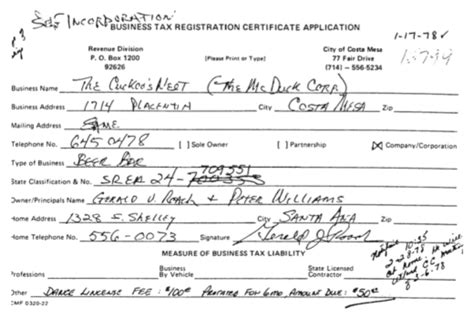 See INCORPORATION
BUSINESS TAX REGISTRATION CERTIFICATE APPLICATION
1-17-78
Revenue Division
P. O. Box 1200
92626
[Please Print or Type]
City of Costa Mesa
77 Fair Drive
(714) — 556-5234
Business Name The Cuckoo's Nest (The Mc Duck Corp)
Business Address 1714 Placentia City Costa Mesa Zip
Mailing Address Same
Telephone No. 645 0478 [ ] Sole Owner [ ] Partnership [X] Company/Corporation
Type of Business Beer Bar
709551
State Classification & No. SREA 24-
Owner/Principals Name Gerald V. Roach & Peter Williams
Home Address 1328 S. Shelley City Santa Ana Zip
Home Telephone No. 556-0073 Signature
MEASURE OF BUSINESS TAX LIABILITY
10:35
2-28-78
Professions Business By Vehicle State Licensed Contractor
Other Dance Lincense Fee: $100 Prorated for 6mo Amount Due: $50
CMF 0320-22